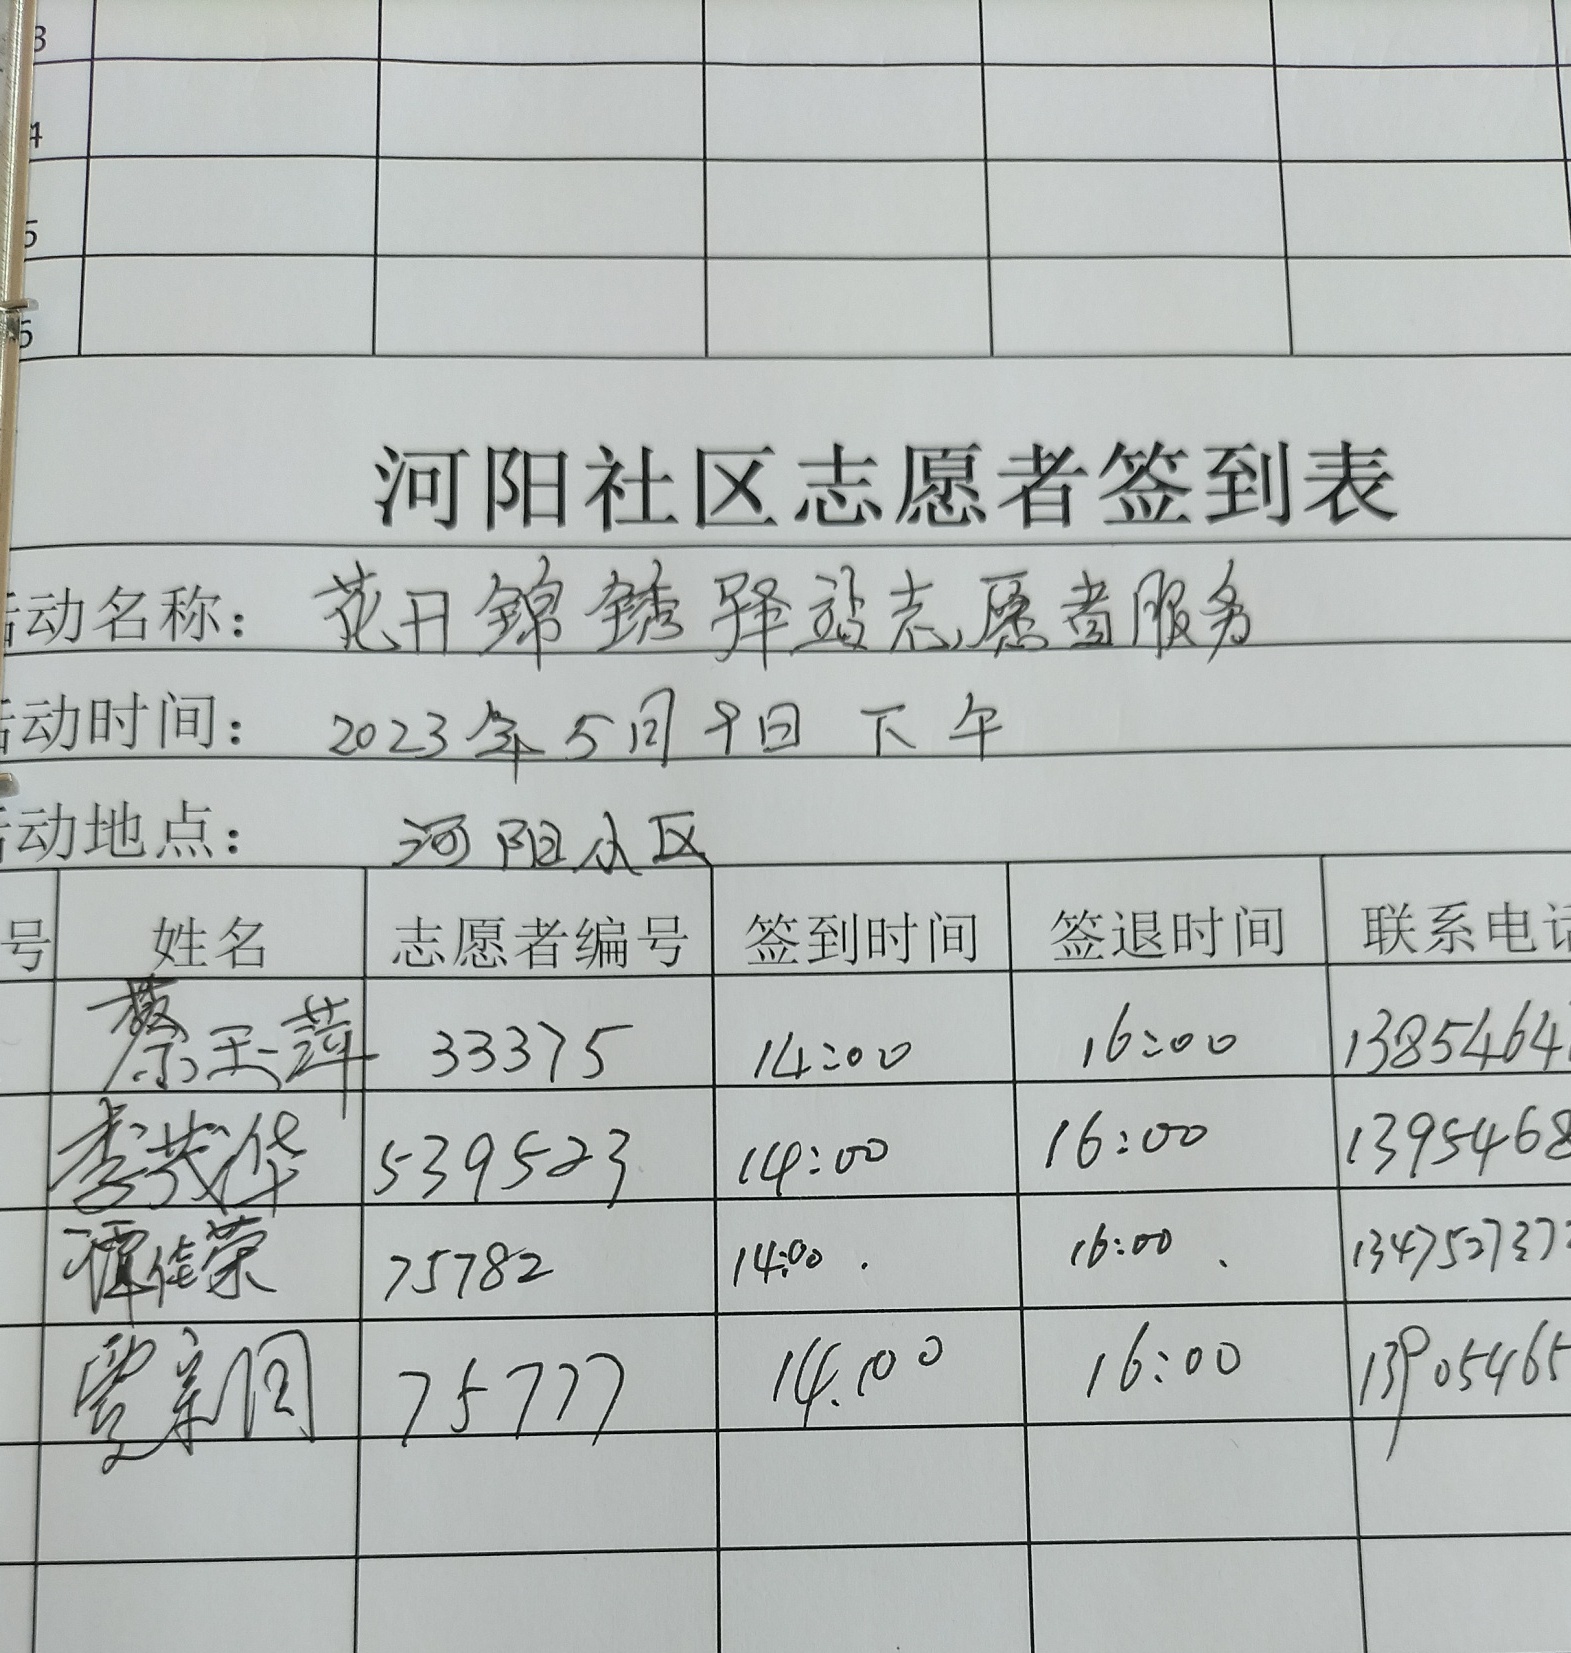 3
4
5
6
河阳社区志愿者签到表
活动名称： 花开锦锈驿站志愿者服务
活动时间： 2023年5月9日 下午
活动地点： 河阳小区
号 姓名 志愿者编号 签到时间 签退时间 联系电话
蔡玉萍 33375 14:00 16:00 1385464
李茂华 539523 14:00 16:00 1395468
谭佳荣 75782 14:00 16:00 134752737
贾 75777 14:00 16:00 13905465